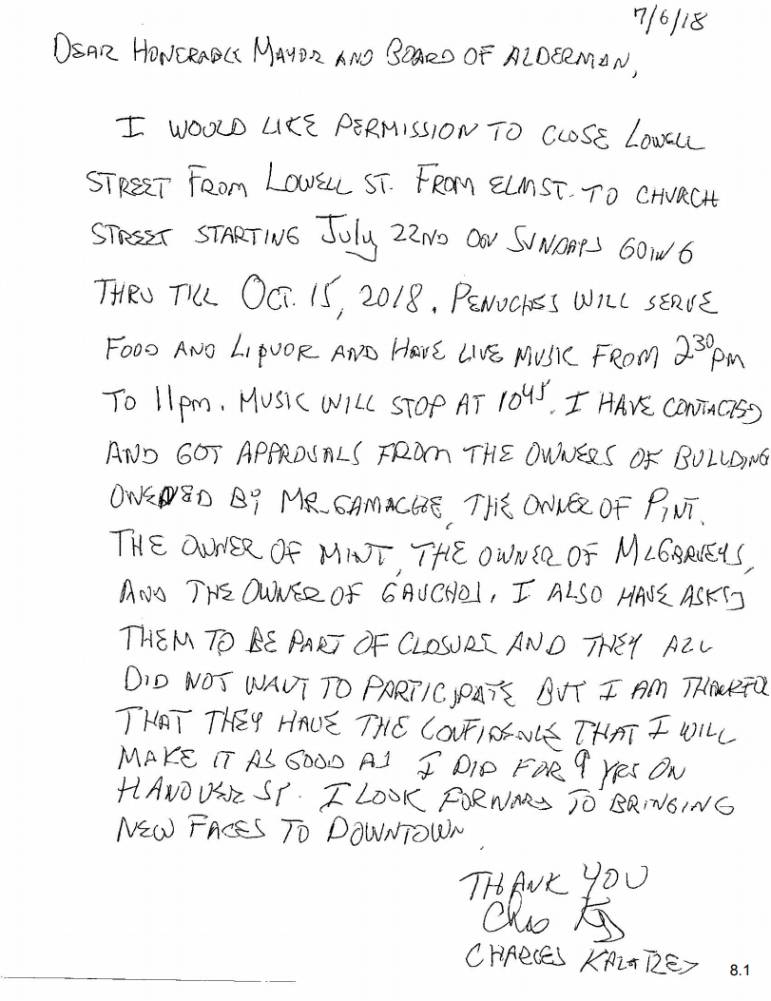 7/6/18
DEAR HONERABLE MAYOR AND BOARD OF ALDERMAN,
I WOULD LIKE PERMISSION TO CLOSE LOWELL
STREET FROM LOWELL ST. FROM ELM ST. TO CHURCH
STREET STARTING July 22ND ON SUNDAYS GOING
THRU TILL OCT. 15, 2018. PENUCHES WILL SERVE
FOOD AND LIQUOR AND HAVE LIVE MUSIC FROM 230 PM
TO 11pm. MUSIC WILL STOP AT 1045. I HAVE CONTACTED
AND GOT APPROVALS FROM THE OWNERS OF BUILDING
OWENED BY MR. GAMACHE, THE OWNER OF PINT,
THE OWNER OF MINT, THE OWNER OF MCGARVEYS,
AND THE OWNER OF GAUCHOS. I ALSO HAVE ASKED
THEM TO BE PART OF CLOSURE AND THEY ALL
DID NOT WANT TO PARTICIPATE BUT I AM THANKFUL
THAT THEY HAVE THE CONFIDENCE THAT I WILL
MAKE IT AS GOOD AS I DID FOR 9 YRS ON
HANOVER ST. I LOOK FORWARD TO BRINGING
NEW FACES TO DOWNTOWN.
THANK YOU
CHARLES
8.1